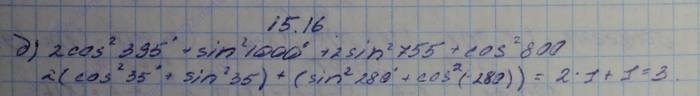 15.16
д) 2cos²395° + sin²1000° + 2sin²755 + cos²800
2(cos²35° + sin²35) + (sin²280° + cos²(-280)) = 2·1 + 1 = 3